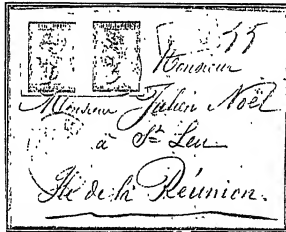 Monsieur
Monsieur Julien Noël
à St Leu
Ile de la Réunion.